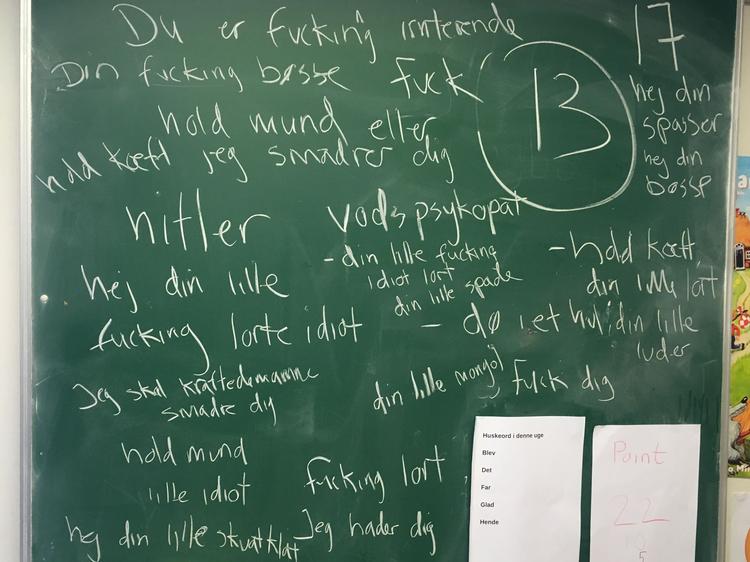 Du er fucking irriterende
Din fucking bøsse fuck
hold mund eller
hold kæft jeg smadrer dig
13
17
hej din
spasser
hej din
bøsse
hitler
vods psykopat
- din lille fucking
idiot lort
din lille spade
- hold kæft
din lille lort
hej din lille
fucking lorte idiot
- dø i et hul, din lille
luder
Jeg skal kraftedemamme
smadre dig
din lille mongol
Fuck dig
hold mund
lille idiot
fucking lort
hej din lille skvatklat
Jeg hader dig
Huskeord i denne uge
Blev
Det
Far
Glad
Hende
Point
22
5